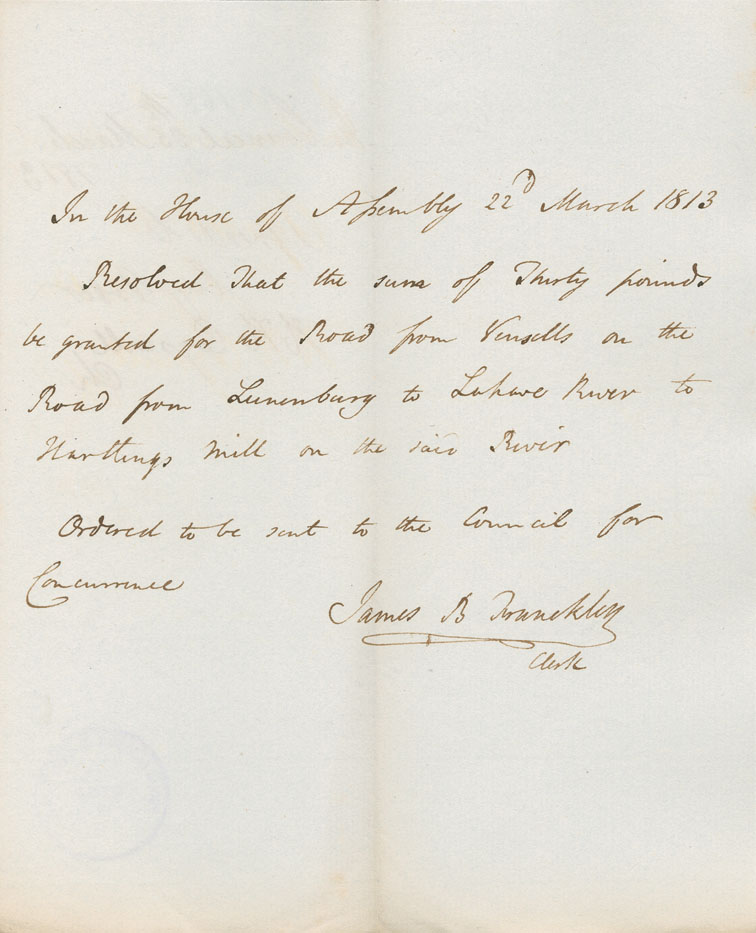 In the House of Assembly 22d March 1813
Resolved That the sum of Thirty pounds
be granted for the Road from Vensells on the
Road from Lunenburg to Lahave River to
Harttings Mill on the said River
Ordered to be sent to the Council for
Concurrence
James B Franckley
Clerk